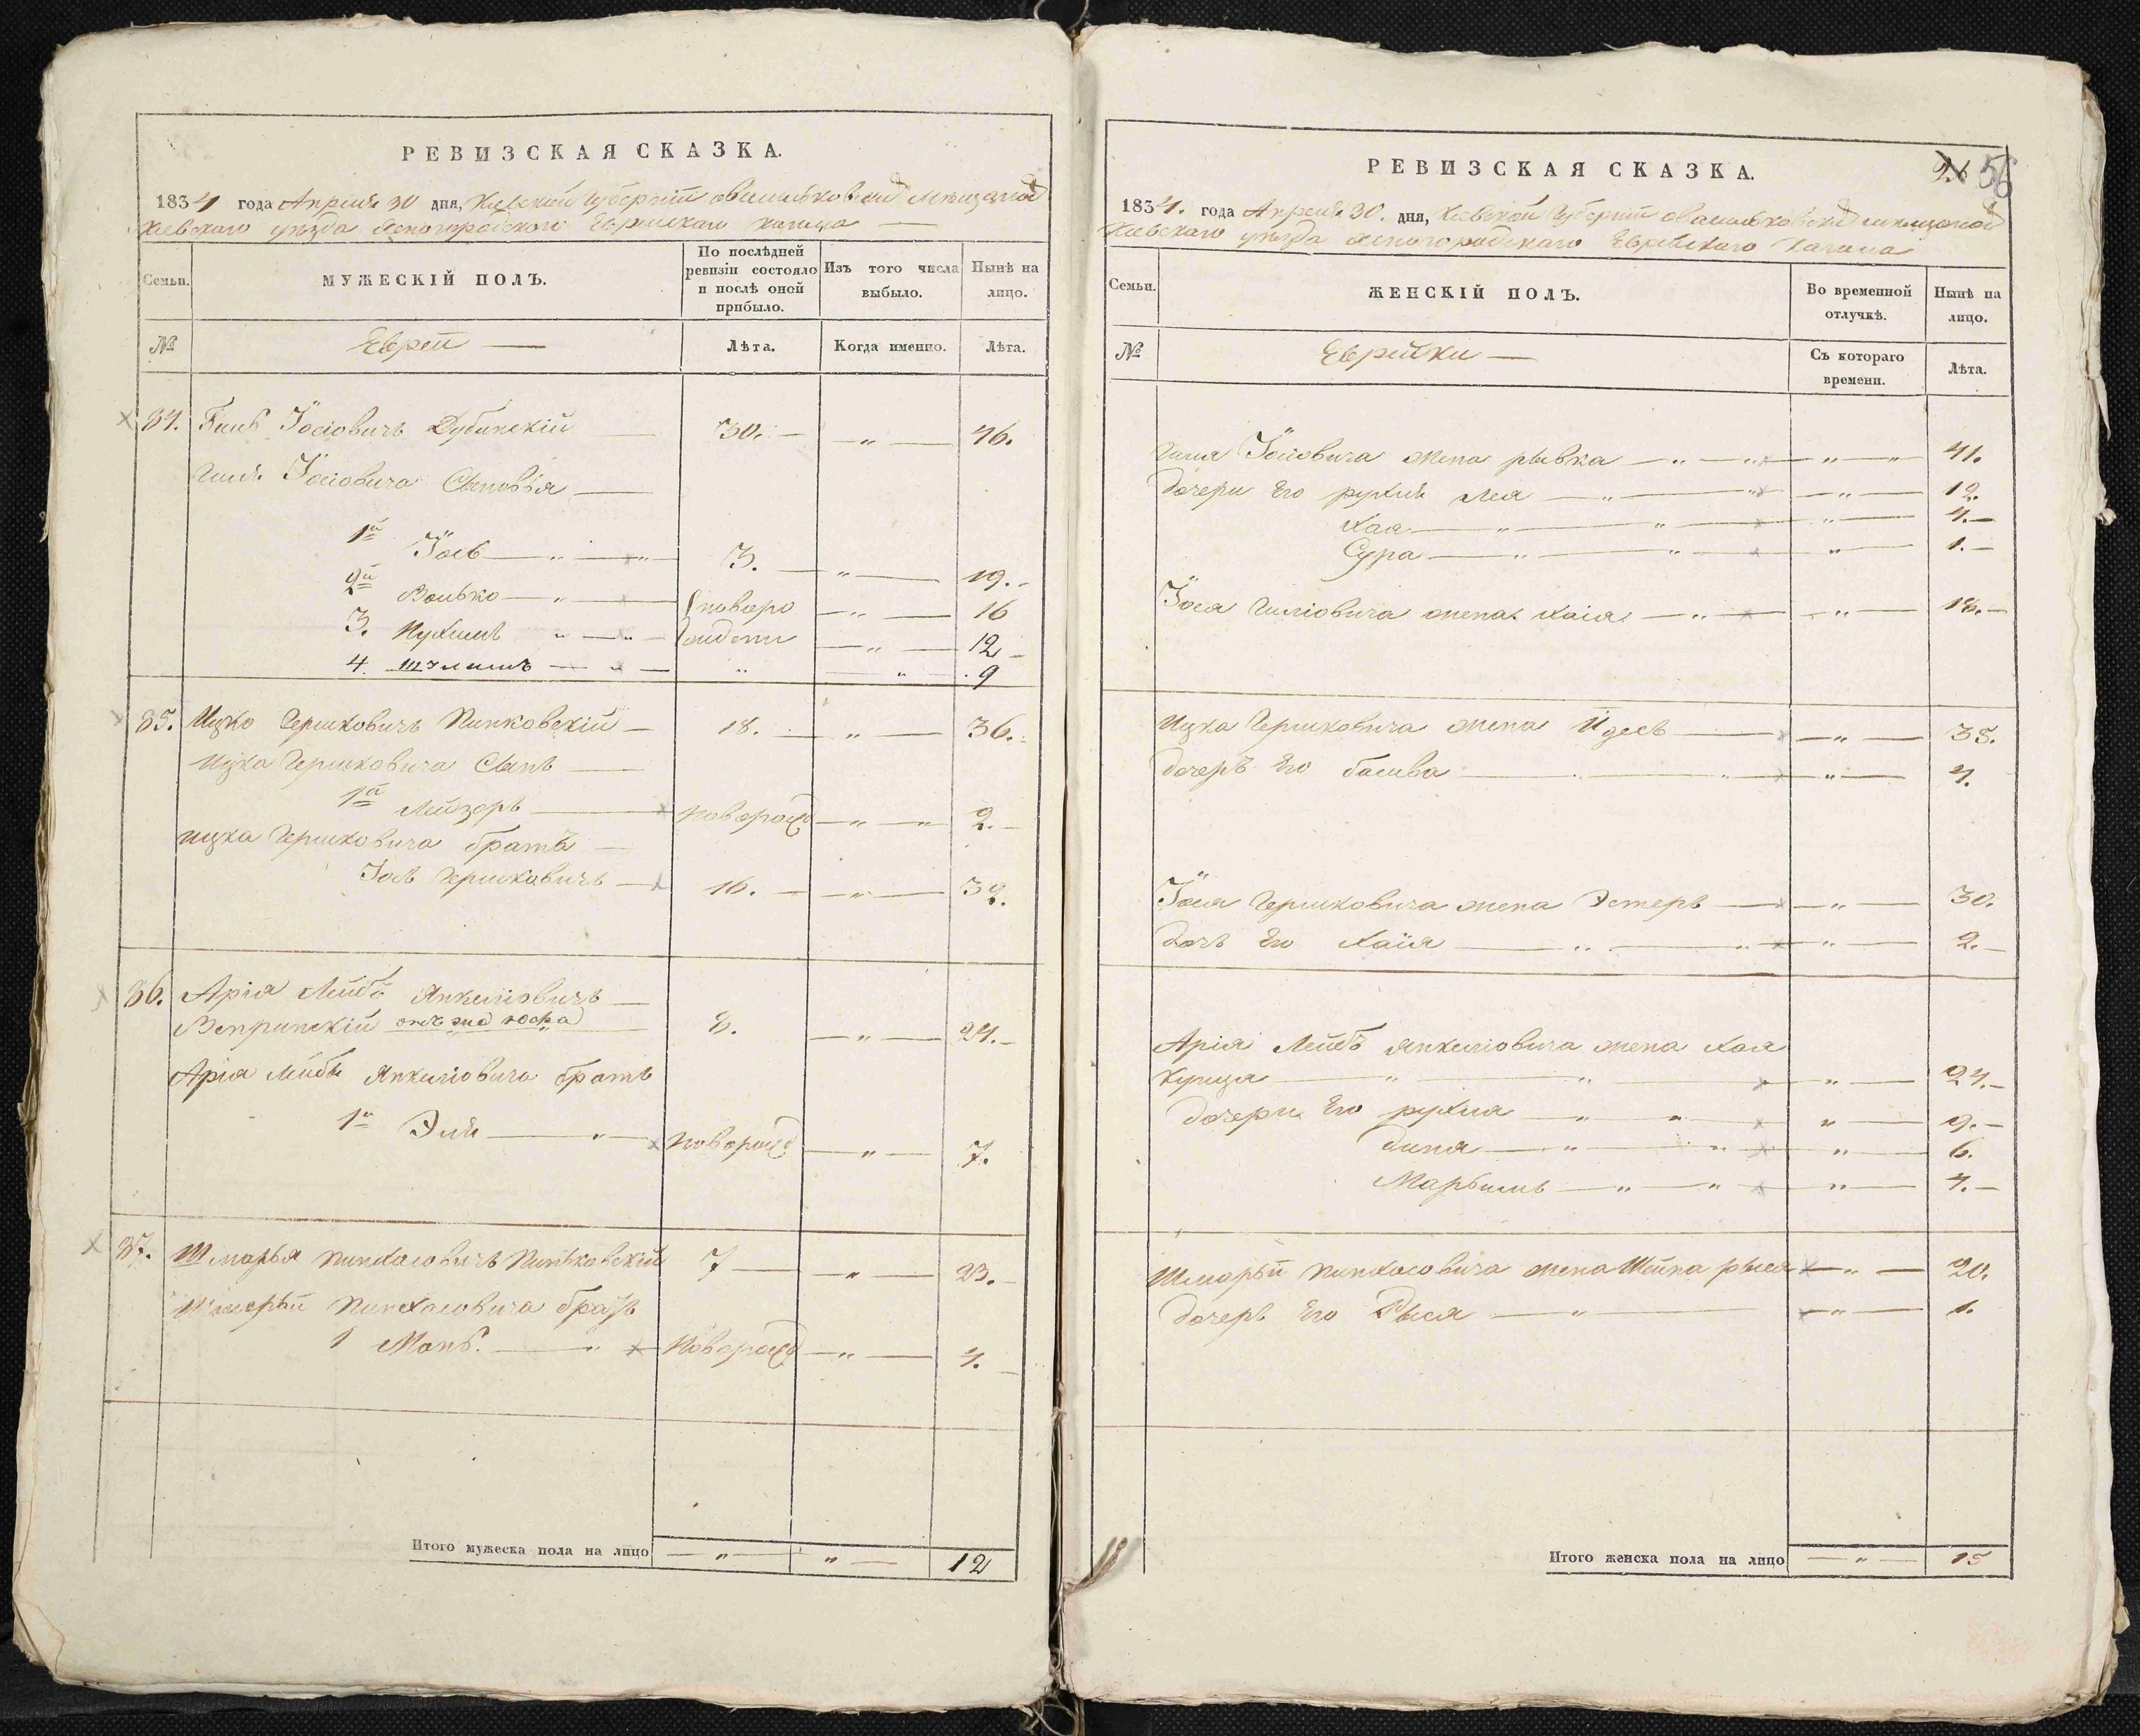 РЕВИЗСКАЯ СКАЗКА.
1834 года Апреля 30 дня, Киевской Губернии
Киевского уезда Еврейского Кагала
Семьи.
МУЖЕСКІЙ ПОЛЪ.
По послѣдней ревизіи состояло и послѣ оной прибыло.
Изъ того числа выбыло.
Нынѣ на лицо.
№
Евреи
Лѣта.
Когда именно.
Лѣта.
34. Іосіовичъ Дубинскій 30. 46.
Іосіовича Сыновья
1й Іось 3. 19.
2й Волько новоро 16
3. 12
4. 9
35. Ицко Гершковичъ Пинковскій 18. 36.
Ицка Гершковича Сынъ
1й Лейзоръ новорожд 2.
Ицка Гершковича братъ
Іось Гершковичъ 16. 32.
36. Арія Лейбъ Янкеліовичъ
Вепринскій 8. 24.
Арія Лейбы Янкеліовича братъ
1й Эля новорожд 7.
37. Шмарья Пинхасовичъ Пиньковскій 7 23.
Шмарьи Пинхасовича братъ
1 новорожд 4.
Итого мужеска пола на лицо 12
РЕВИЗСКАЯ СКАЗКА.
56
1834. года Апреля 30. дня, Киевской Губернии
Киевского уезда Еврейского Кагала
Семьи.
ЖЕНСКІЙ ПОЛЪ.
Во временной отлучкѣ.
Нынѣ на лицо.
№
Еврейки
Съ котораго времени.
Лѣта.
Іосіовича жена рывка 41.
дочери Его рухля лея 12.
Хая 4.
Сура 1.
Іося жена Хаія 18.
Ицка Гершковича жена Идесъ 35.
дочеръ Его басива 4.
Іося Гершковича жена Эстеръ 30.
дочь Его Хаія 2.
Арія Лейбъ Янкеліовича жена Хая
24.
дочери Его рухля 9.
дина 6.
Марьимъ 4.
Шмарьи Пинхасовича жена Шейна рыся 20.
дочеръ Его Рыся 1.
Итого женска пола на лицо 15